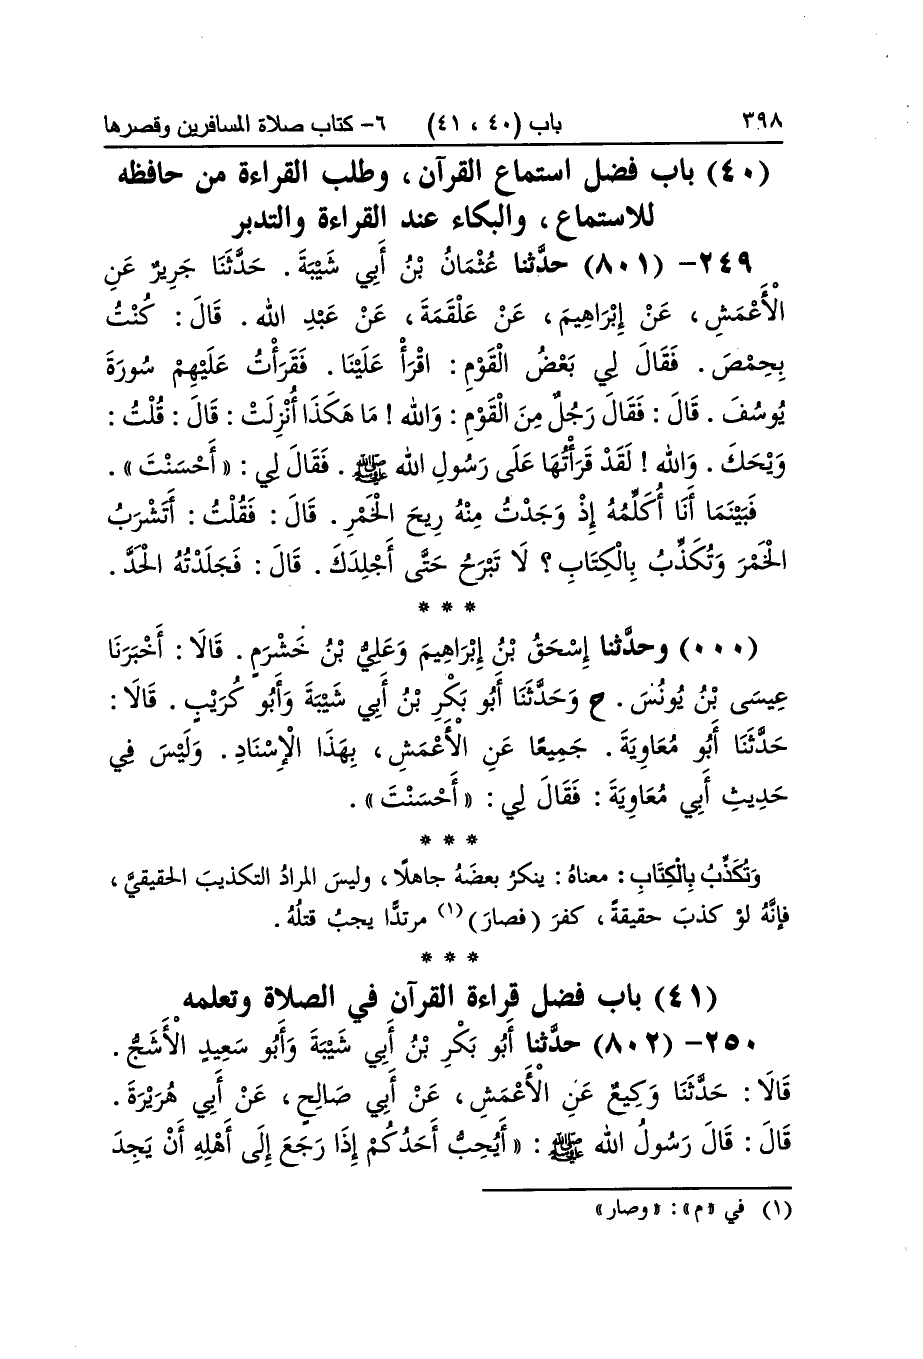 ٣٩٨ باب (٤٠ ، ٤١) ٦- كتاب صلاة المسافرين وقصرها
(٤٠) باب فضل استماع القرآن ، وطلب القراءة من حافظه
للاستماع ، والبكاء عند القراءة والتدبر
٢٤٩- (٨٠١) حدَّثنا عُثْمَانُ بْنُ أَبِي شَيْبَةَ . حَدَّثَنَا جَرِيرٌ عَنِ
الْأَعْمَشِ ، عَنْ إِبْرَاهِيمَ ، عَنْ عَلْقَمَةَ ، عَنْ عَبْدِ الله . قَالَ : كُنْتُ
بِحِمْصَ . فَقَالَ لِي بَعْضُ الْقَوْمِ : اقْرَأْ عَلَيْنَا . فَقَرَأْتُ عَلَيْهِمْ سُورَةَ
يُوسُفَ . قَالَ : فَقَالَ رَجُلٌ مِنَ الْقَوْمِ : وَالله ! مَا هَكَذَا أُنْزِلَتْ : قَالَ : قُلْتُ :
وَيْحَكَ . وَالله ! لَقَدْ قَرَأْتُهَا عَلَى رَسُولِ الله ﷺ . فَقَالَ لِي : « أَحْسَنْتَ » .
فَبَيْنَمَا أَنَا أُكَلِّمُهُ إِذْ وَجَدْتُ مِنْهُ رِيحَ الْخَمْرِ . قَالَ : فَقُلْتُ : أَتَشْرَبُ
الْخَمْرَ وَتُكَذِّبُ بِالْكِتَابِ ؟ لَا تَبْرَحُ حَتَّى أَجْلِدَكَ . قَالَ : فَجَلَدْتُهُ الْحَدَّ .
* * *
(٠٠٠) وحدَّثنا إِسْحَقُ بْنُ إِبْرَاهِيمَ وَعَلِيُّ بْنُ خَشْرَمٍ . قَالَا : أَخْبَرَنَا
عِيسَى بْنُ يُونُسَ . ح وَحَدَّثَنَا أَبُو بَكْرِ بْنُ أَبِي شَيْبَةَ وَأَبُو كُرَيْبٍ . قَالَا :
حَدَّثَنَا أَبُو مُعَاوِيَةَ . جَمِيعًا عَنِ الْأَعْمَشِ ، بِهَذَا الْإِسْنَادِ . وَلَيْسَ فِي
حَدِيثِ أَبِي مُعَاوِيَةَ : فَقَالَ لِي : « أَحْسَنْتَ » .
* * *
وَتُكَذِّبُ بِالْكِتَابِ : معناهُ : ينكرُ بعضَهُ جاهلًا ، وليسَ المرادُ التكذيبَ الحقيقيَّ ،
فإنَّهُ لوْ كذبَ حقيقةً ، كفرَ (فصارَ) (١) مرتدًّا يجبُ قتلُهُ .
* * *
(٤١) باب فضل قراءة القرآن في الصلاة وتعلمه
٢٥٠- (٨٠٢) حدَّثنا أَبُو بَكْرِ بْنُ أَبِي شَيْبَةَ وَأَبُو سَعِيدٍ الْأَشَجُّ .
قَالَا : حَدَّثَنَا وَكِيعٌ عَنِ الْأَعْمَشِ ، عَنْ أَبِي صَالِحٍ ، عَنْ أَبِي هُرَيْرَةَ .
قَالَ : قَالَ رَسُولُ الله ﷺ : « أَيُحِبُّ أَحَدُكُمْ إِذَا رَجَعَ إِلَى أَهْلِهِ أَنْ يَجِدَ
(١) في «م» : «وصار»